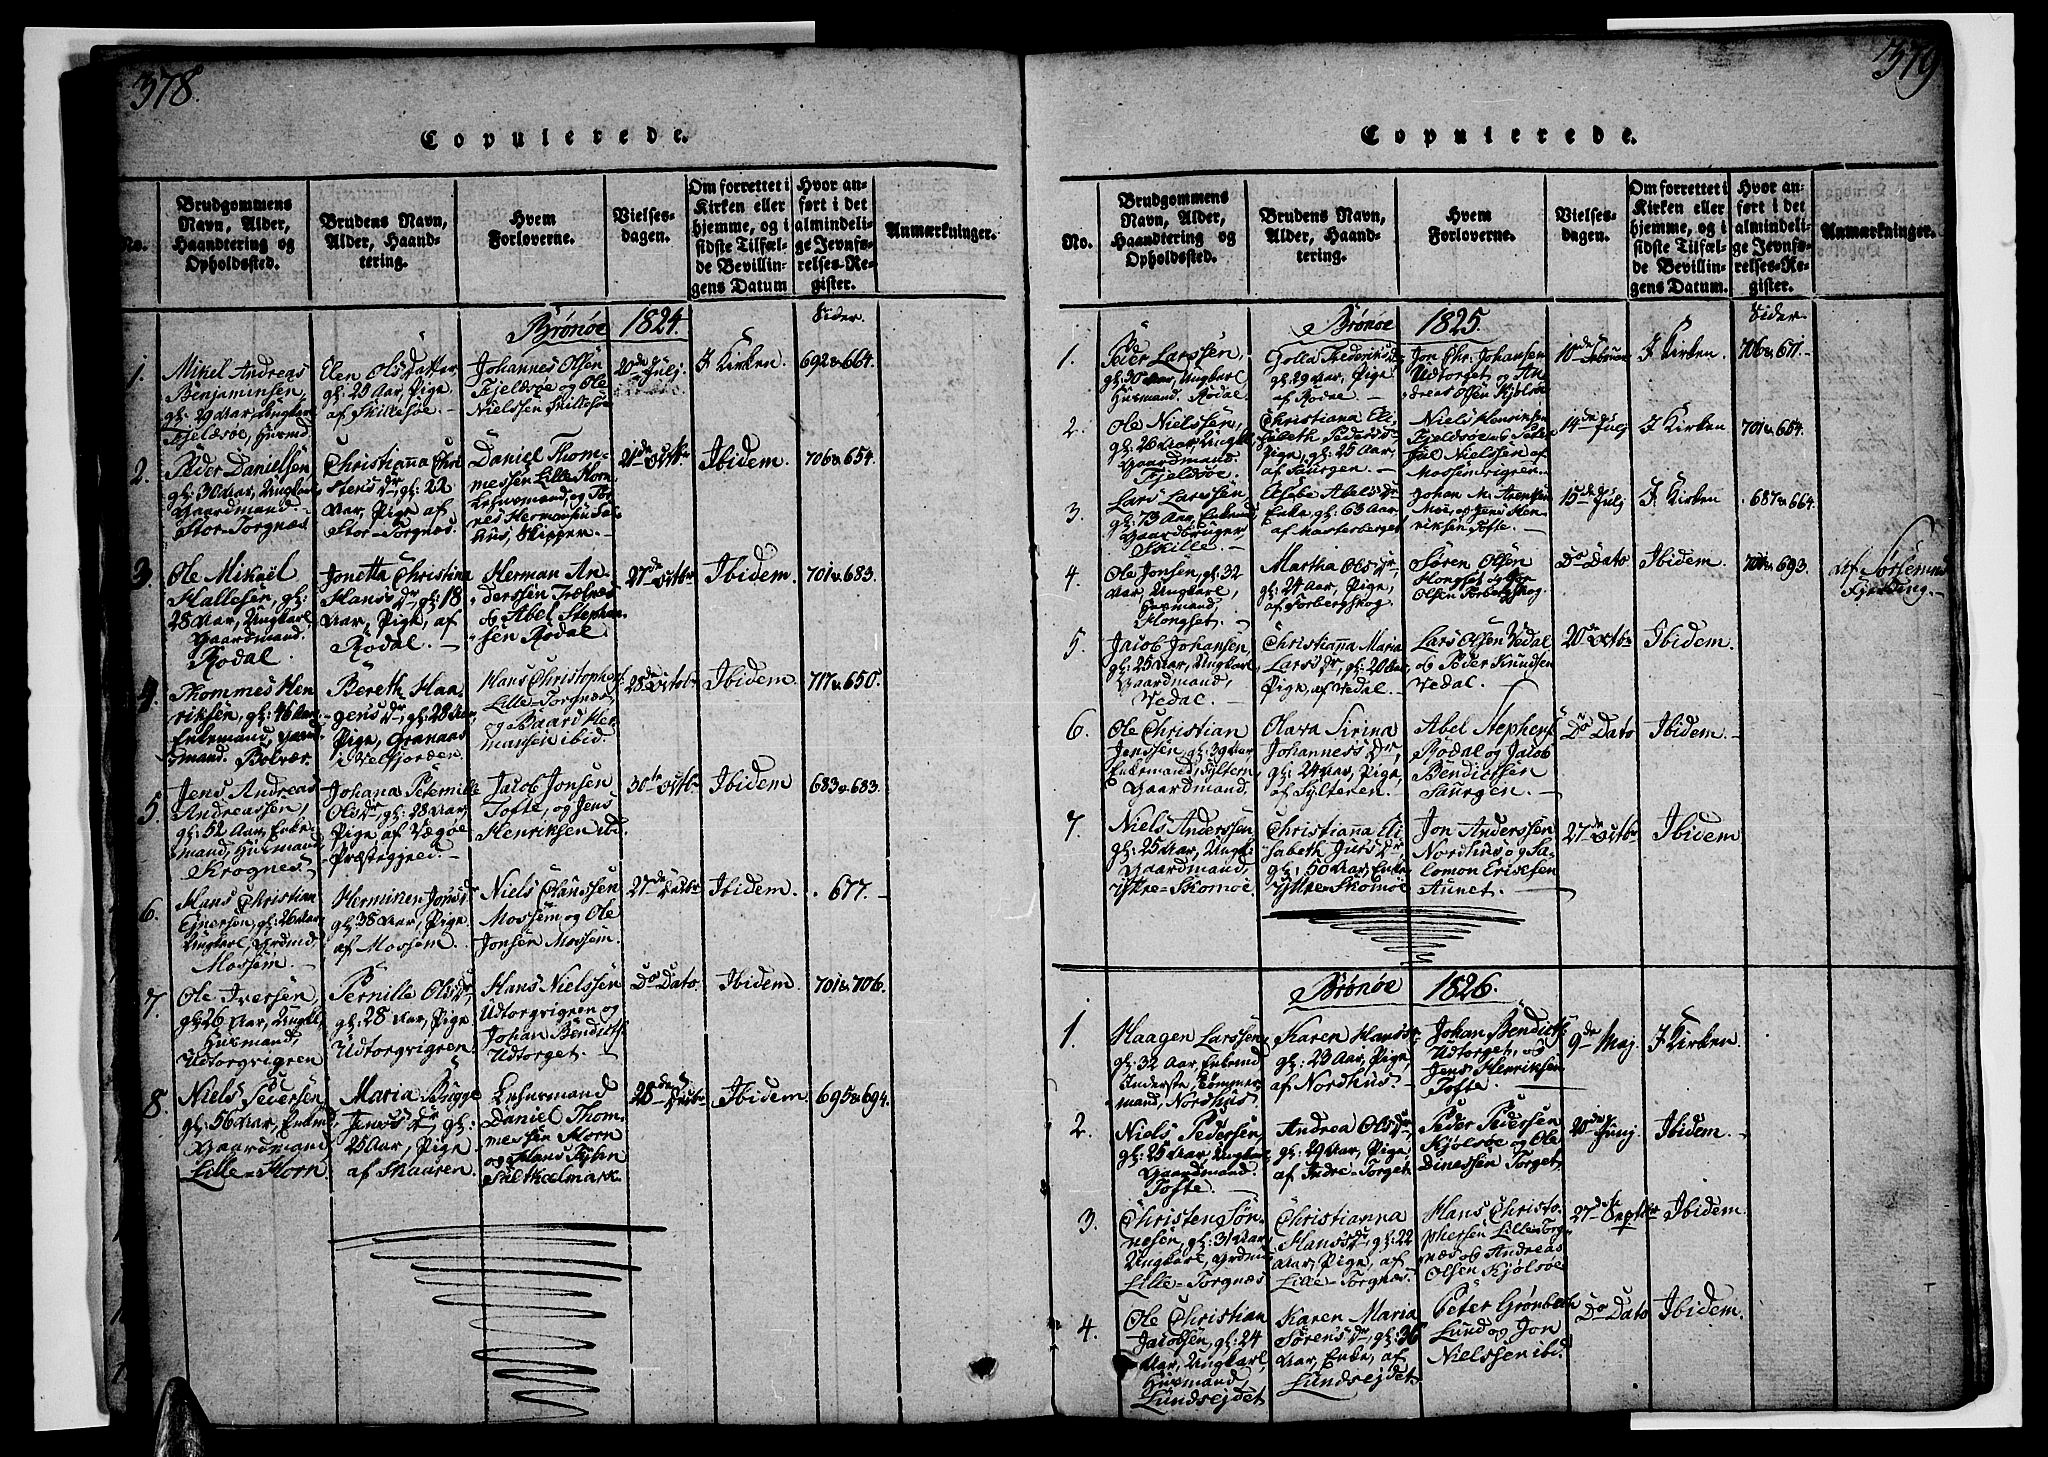 378.
Copulerede.
No.
Brudgommens
Navn, Alder,
Haandtering og
Opholdssted.
Brudens Navn,
Alder, Haand-
tering.
Hvem
Forloverne.
Vielses-
dagen.
Om forrettet i
Kirken eller
hjemme, og i
sidste Tilfæl-
de Bevillin-
gens Datum
Hvor an-
ført i det
almindeli-
ge Jevnfø-
relses-Re-
gister.
Anmærkninger.
Brønøe 1824.
Sider.
1.
Mikel Andreas
Benjaminsen,
gl: 29 Aar Ungkarl
Fjeldsøe, Huusmd.
Elen Olsdatter,
gl: 23 Aar, Pige
af Skillesøe –
Johannes Olsen
Fjeldsøe og Ole
Nielssen Skillesøe
20de Julj.
I Kirken.
692 & 664.
2.
Peder Danielsen
gl: 30 Aar, Ungkarl
Gaardmand.
Stor-Torgnæs.
Christianna Chri-
stens Dr, gl: 22
Aar, Pige af
Stor-Torgnæs.
Daniel Thom-
messen Lille Horn
Lehnsmand, og Tør-
nes Hermansen
hus, Skipper. –
21de Octbr
Ibidem.
706 & 654.
3.
Ole Mikael
Hallesen, gl:
28 Aar, Ungkarl
Gaardmand.
Rodal.
Jonetta Christina
Hans Dr, gl: 18
Aar, Pige, af
Rodal. –
Herman An-
derssen Trælnæs
og Abel Stephan-
sen Rodal
27de Octbr
Ibidem.
701 & 683.
4.
Thommes Hen-
riksen, gl: 46 Aar
Enkemand, Gaard-
mand. Bolvær.
Bereth Haa-
gens Dr, gl: 28 Aar,
Pige, Granaas
i Velfjorden
Hans Christophers.
Lille-Torgnæs,
og Baard Her-
mansen ibid.
28de Octobr
Ibidem.
717 & 650.
5.
Jens Andreas
Andreassen,
gl: 52 Aar, Enke-
mand, Huusmand
Krognes. –
Johana Petemille
Ols Dr, gl: 28 Aar,
Pige af Vægøe
Præstegjeld. –
Jacob Jonsen
Tofte, og Jens
Henriksen ibd.
30te Octbr
Ibidem
683 & 683.
6.
Hans Christian
Ejnersen, gl: 26 Aar
Ungkarl, Grdmd,
Mossem. –
Herminen Jons Dr
gl: 38 Aar, Pige
af Mossem.
Niels Clausen
Mossem og Ole
Jonsen Mossem.
27de Octbr
Ibidem.
677. –
7.
Ole Iversen,
gl: 26 Aar, Ungkl,
Huusmand,
Udtorgvigren
Pernille Ols Dr,
gl: 28 Aar, Pige
Udtorgvigren.
Hans Nielssen
Udtorgvigren og
Johan Bendicts.
Udtorget. –
Do Dato.
Ibidem
701 & 706.
8.
Niels Pedersen,
gl: 56 Aar, Enkemd
Gaardmand
Lille-Horn.
Maria Bugge
Jens Dr, gl:
25 Aar, Pige
af Skaaren.
Lehnsmand
Daniel Thom-
messen Horn
og Hans Kyhn
Ibidem.
695 & 694.
379
Copulerede.
No.
Brudgommens
Navn, Alder,
Haandtering og
Opholdssted.
Brudens Navn,
Alder, Haand-
tering.
Hvem
Forloverne.
Vielses-
dagen.
Om forrettet i
Kirken eller
hjemme, og i
sidste Tilfæl-
de Bevillin-
gens Datum.
Hvor an-
ført i det
almindeli-
ge Jevnfø-
relses-Re-
gister.
Anmærkninger.
Brønøe 1825.
Sider.
1.
Peder Larssen,
gl: 30 Aar, Ungkarl,
Huusmand. Rodal.
Golla Frederiks Dr
gl: 29 Aar, Pige
af Rodal –
Jon Chr: Johansen
Udtorget og An-
dreas Olsen Kjølsøe
I Kirken.
706 & 671. –
2.
Ole Nielssen,
gl: 26 Aar, Ungkl
Gaardmand.
Fjeldsøe. –
Christiana Eli-
sabeth Peders Dr
Pige, gl: 25 Aar,
af Saurgen. –
Niels Henriksen
Fjeldsøe og Peter
Nielssen af
Mossemvigren –
14de Julj
I Kirken
701 & 664.
3.
Lars Larssen
gl: 73 Aar, Enkemd
Gaardbruger
Skille. –
Elsebe Abels Dr
Enke, gl: 63 Aar,
af Mosterberget
Johan M. Arentsen
Moe, og Jens Hen-
riksen Tofte. –
15de Julj
I Kirken
687 & 664.
4
Ole Jonsen, gl: 32
Aar, Ungkarl,
Huusmand,
Hongset. –
Martha Ols Dr,
gl: 24 Aar, Pige,
af Torbergskog.
Søren Olsen
Hongset og Jon
Olsen Torbergskog.
Do Dato
Ibidem.
& 693.
af Sørlemns
Fjerding. –
5.
Jacob Johansen,
gl: 25 Aar, Ungkarl
Gaardmand,
Vedal.
Christianna Maria
Lars Dr, gl: 20 Aar
Pige, af Vedal. –
Lars Olsen Vedal
og Peder Knudsen
Vedal. –
20de Octbr
Ibidem.
6.
Ole Christian
Jenssen, gl: 39 Aar,
Enkemand, Sylteren
Gaardmand.
Olava Sirina
Johanness Dr,
gl: 24 Aar, Pige,
af Sylteren. –
Abel Stephens.
Rødal og Jacob
Bendictsen
Saurgen. –
Do Dato
Ibidem. –
7.
Niels Anderssen,
gl: 25 Aar, Ungkl
Gaardmand,
Yttre-Skomøe.
Christianna Eli-
sabeth Jurs Dr,
gl: 50 Aar, Enke
Yttre-Skomøe
Jon Anderssen
Nordhus og Sa-
lomon Eriksen
Aunet. –
27de Octbr
Ibidem
Brønøe 1826.
1.
Haagen Larssen,
gl: 32 Aar Enkemd
Inderste, Tømmer-
mand, Nordhus
Karen Hans Dr
gl: 23 Aar, Pige,
af Nordhus –
Johan Bendicts.
Udtorget, og
Jens Henriksen
Tofte. –
9de Maj.
I Kirken.
2.
Niels Pedersen,
gl: 25 Aar, Ungkarl
Gaardmand.
Tofte. –
Andrea Ols Dr,
gl: 29 Aar, Pige
af Indre-Torget
Peder Pedersen
Kjølsøe og Ole
Dinessen Torget,
20de Junj.
Ibidem. –
3.
Christen Sør-
nesen, gl: 31 Aar,
Ungkarl, Grdmd
Lille-Torgnæs
Christianna
Hans Dr, gl: 22
Aar, Pige, af
Lille-Torgnæs.
Hans Christo-
phersen Lille Torg-
næs og Andreas
Olsen Kjølsøe
27de Septbr
Ibidem.
4.
Ole Christian
Jacobsen, gl: 24
Aar, Ungkarl,
Huusmand,
Lundsejdet
Karen Maria
Sørens Dr, gl: 36
Aar, Enke, af
Lundsejdet
Peter Grønbech
Lund og Jon
Nielssen ibid.
Do Dato
Ibidem.